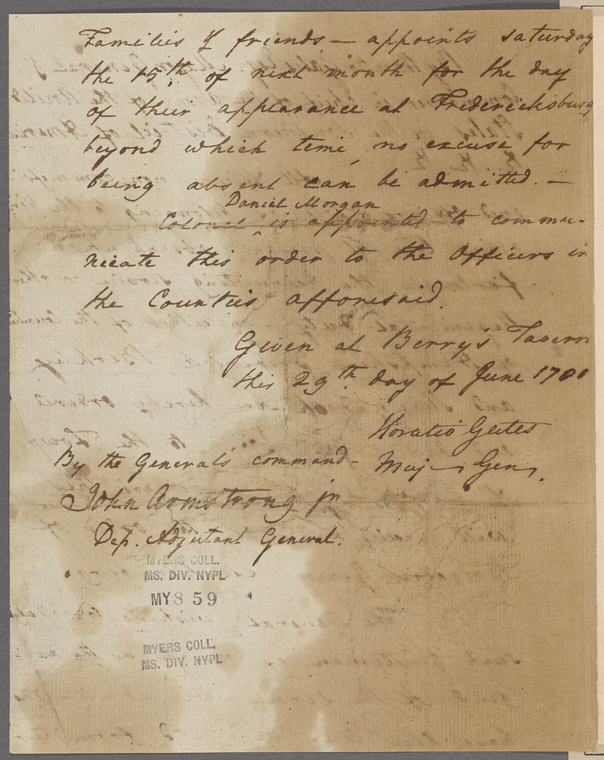 Families & friends — appoints saturday
the 15th of next month for the day
of their appearance at Fredericksburg
beyond which time, no excuse for
being absent can be admitted. —
Daniel Morgan
Colonel ^ is appointed to commu-
nicate this order to the Officers in
the Counties afforesaid.
Given at Berry's Tavern
this 29th. day of June 1780
Horatio Gates
By the General's command — Maj— Gen.
John Armstrong jr
Dep. Adjutant General.
MYERS COLL.
MS. DIV. NYPL
MY 8 59
MYERS COLL.
MS. DIV. NYPL